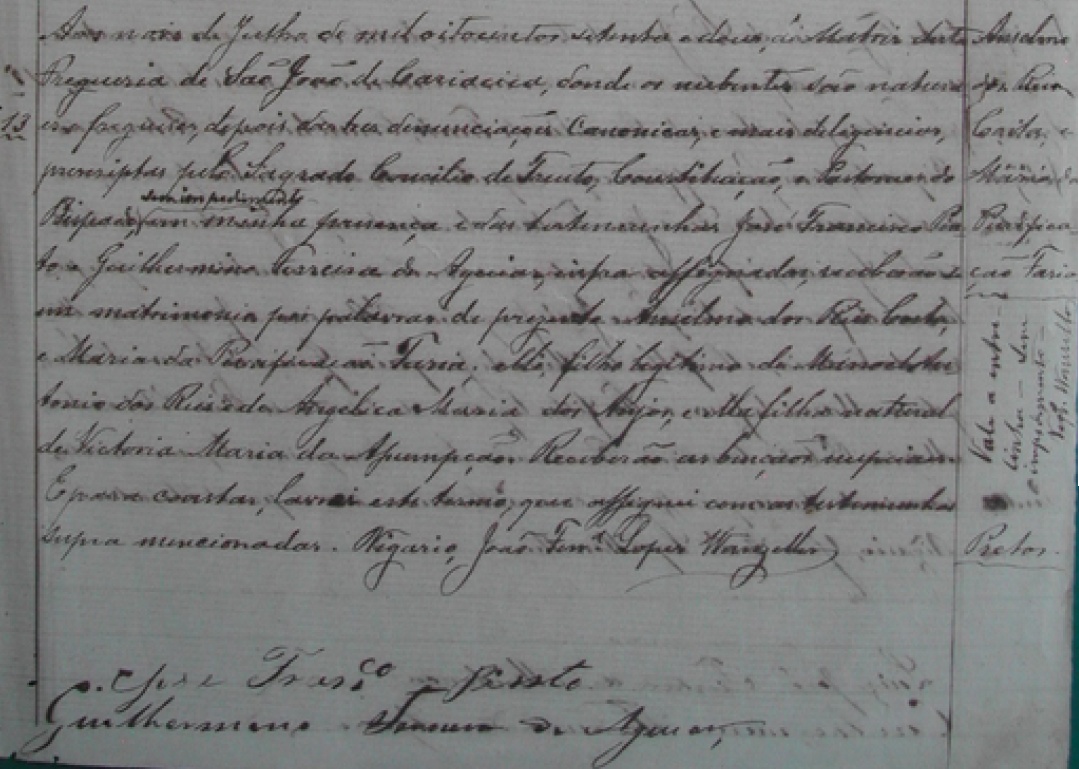 Aos nove de Julho de mil oitocentos setenta e dous, na Matriz desta
Freguezia de São João de Cariacica, donde os nubentes são natura
es e freguezes, depois das tres denunciações Canonicas, e mais deligencias,
prescriptas pelo Sagrado Concilio de Trento, Constituição, e Pastoraes do
sem impedimento
Bispado, em minha presença e das testemunhas José Francisco Pin
to e Guilhermino Ferreira de Aguiar, infra assignados, receberão-se
em matrimonio por palavras de prezente Anselmo dos Reis Costa,
e Maria da Purificação Faria, elle filho legitimo de Manoel An
tonio dos Reis e de Angelica Maria dos Anjos, e ella filha natural
de Victoria Maria da Assumpção. Receberão as bençãos nupciaes.
E para constar, lavrei este termo, que assignei com as testemunhas
supra mencionadas. Vigario, João Lopes Wanzeller
José Fran.co Pinto
Guilhermino Ferreira de Aguiar,
13
Anselmo
dos Reis
Costa, e
Maria da
Purifica
ção Faria
Vale a entre-
linha - sem
impedimento -
Wanzeller
Pretos.